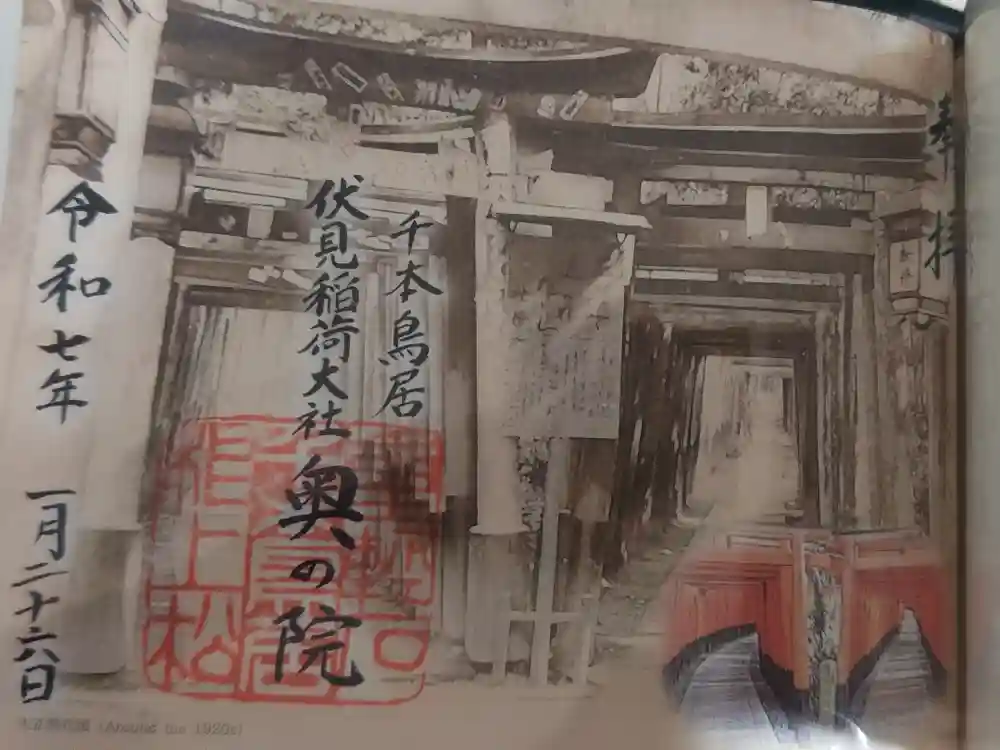 奉拝
千本鳥居
伏見稲荷大社
奥の院
令和七年 一月二十六日
(Around the 1920s)